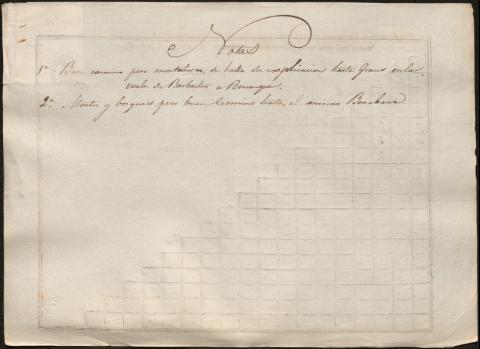 Notas
1ª Buen camino pero montañoso, se halla su explicacion hasta Graus en la
ruta de Barbastro a Benasque.
2ª Montes y bosques pero buen Camino hasta el mismo Benabarre